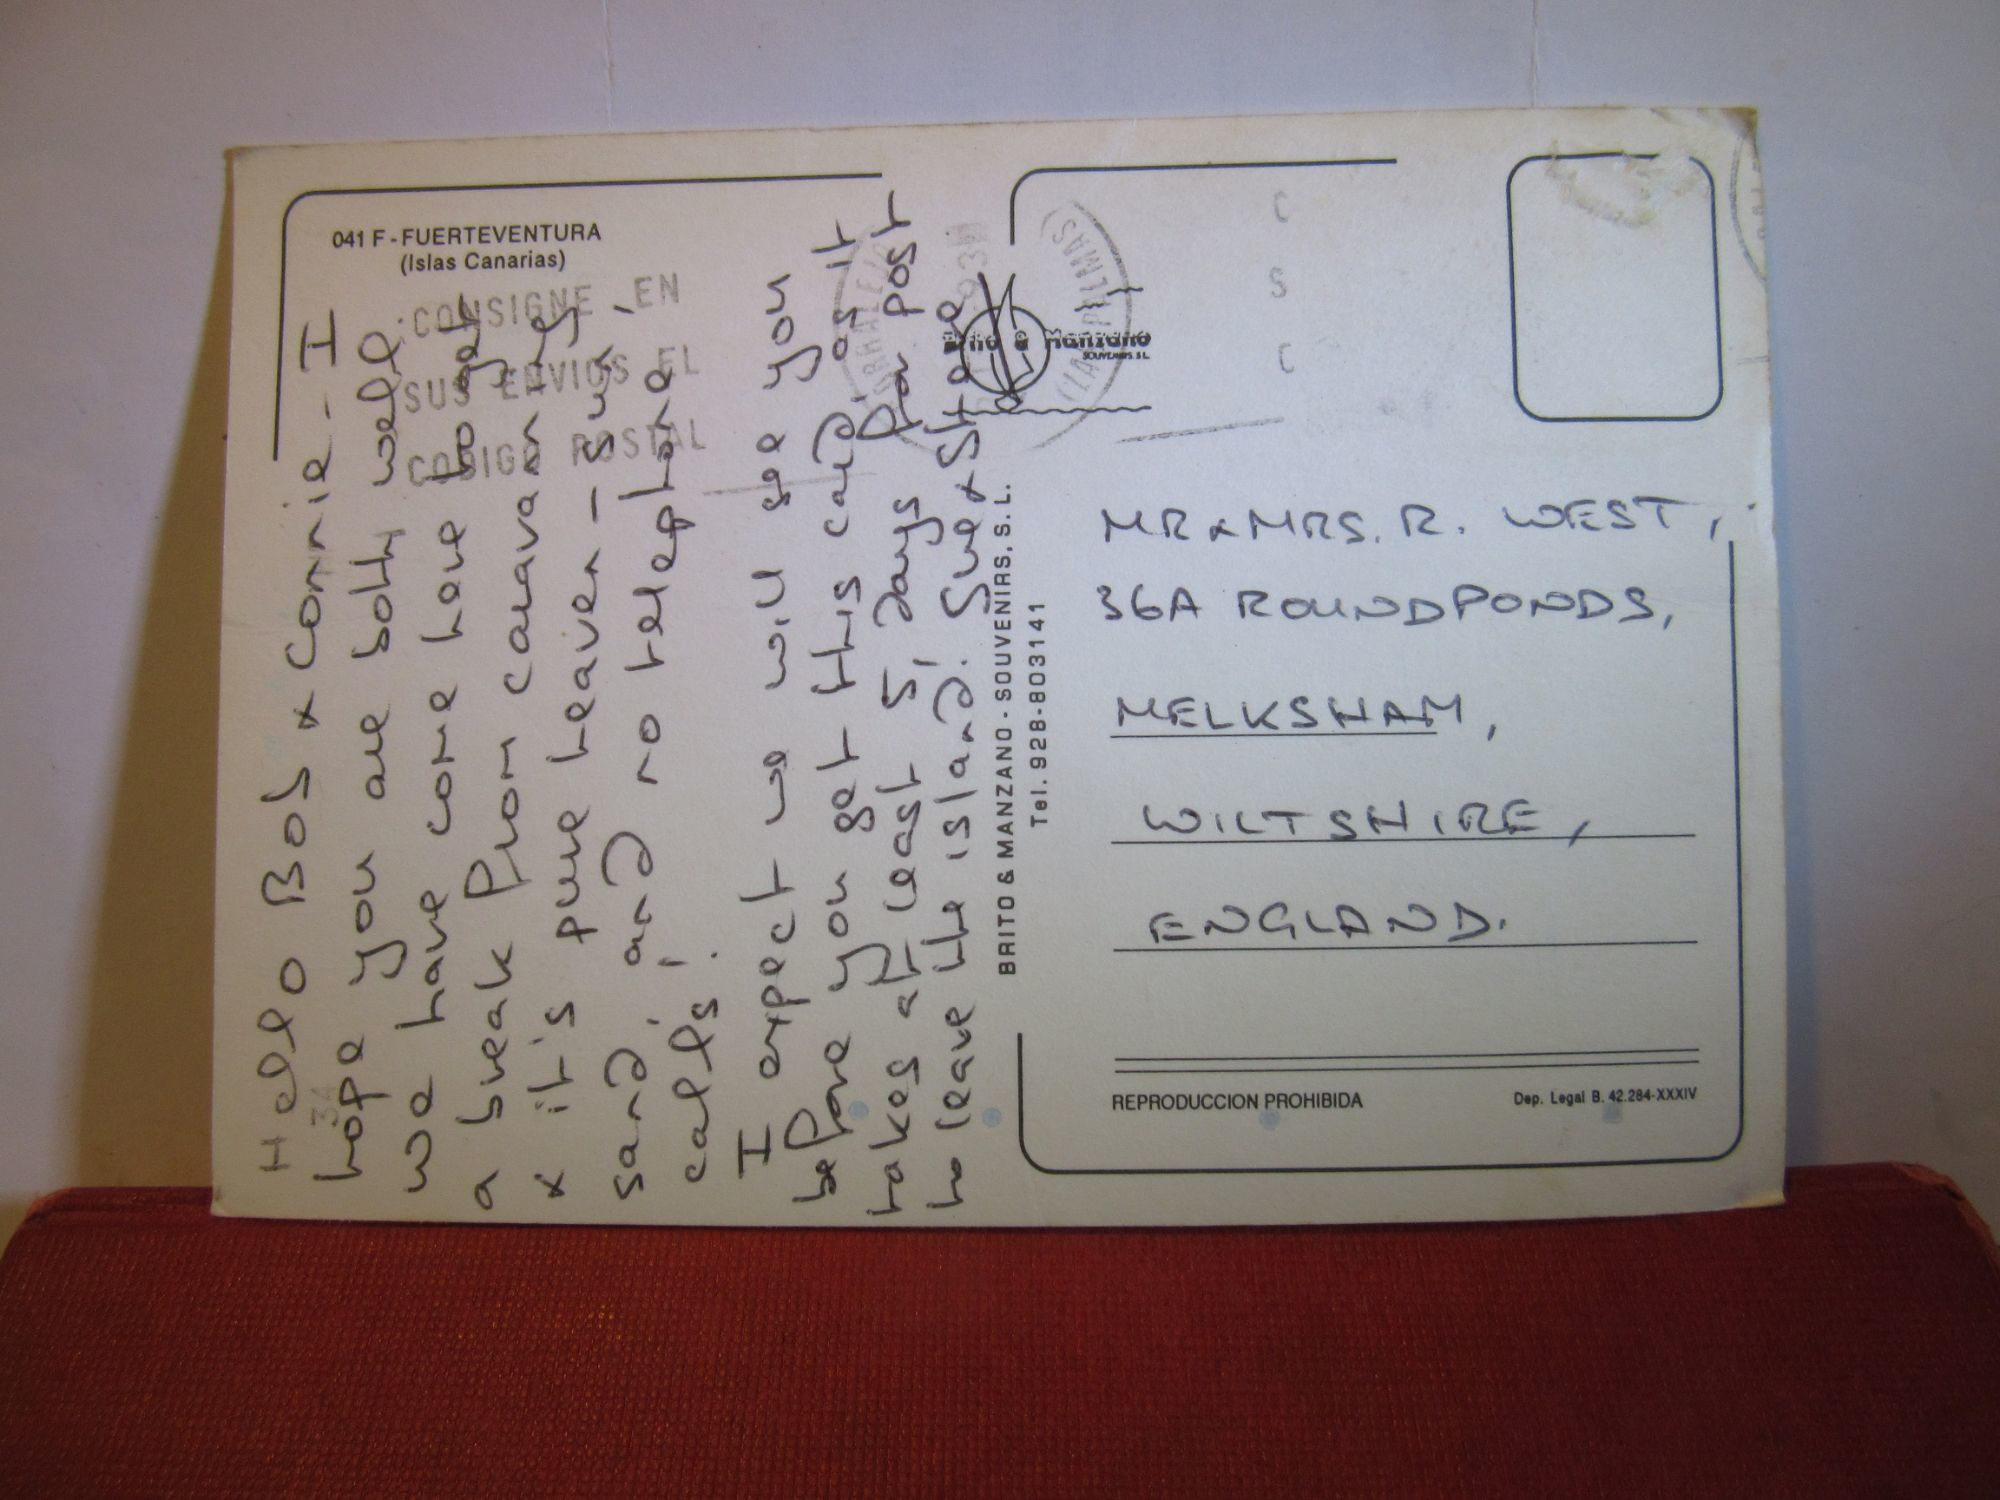 041 F - FUERTEVENTURA
(Islas Canarias)
CONSIGNE EN
SUS ENVIOS EL
CODIGO POSTAL
Hello Bob & Connie - I
hope you are both well
we have come here to get
a break from caravanning
& it's pure heaven - sun,
sand, and no telephone
calls!
I expect we will see you
before you get this card as it
takes at least 5 days for post
to leave the island! Sue & Steve
BRITO & MANZANO - SOUVENIRS, S. L.
Tel. 928-803141
Brito & Manzano
SOUVENIRS. S.L.
CORRALEJO
(LAS PALMAS)
C
S
C
MR & MRS. R. WEST,
36A ROUNDPONDS,
MELKSHAM,
WILTSHIRE,
ENGLAND.
REPRODUCCION PROHIBIDA
Dep. Legal B. 42.284-XXXIV